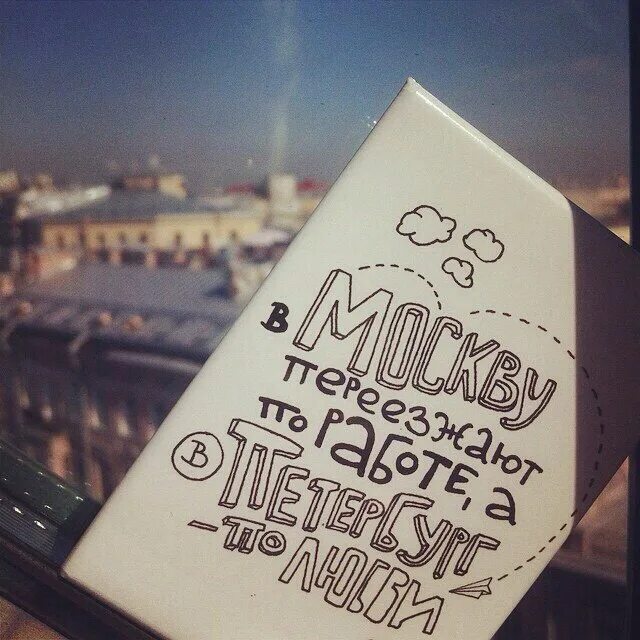 в МОСКВУ
переезжают
по работе, а
в ПЕТЕРБУРГ
– по ЛЮБВИ